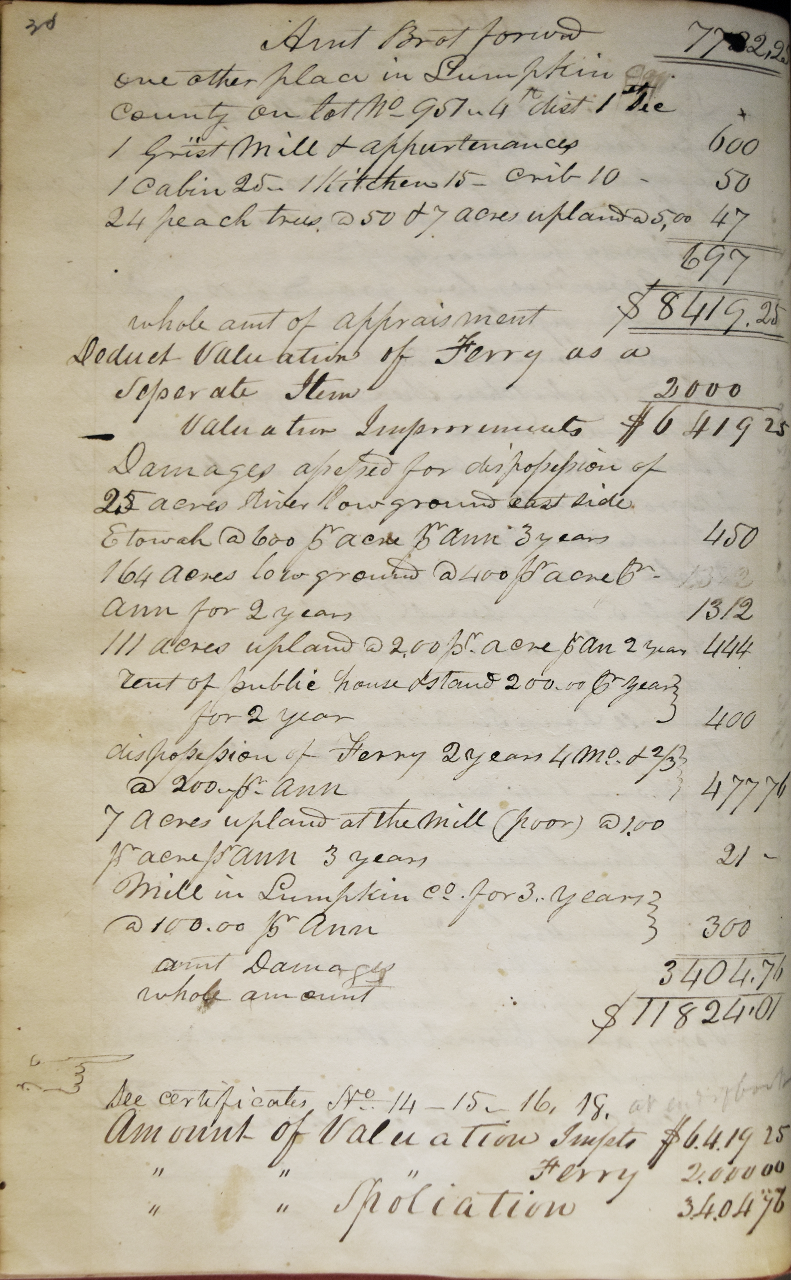 Amt Brot forwd 7722,25
one other place in Lumpkin
County on Lot No 951 n 4th dist 1st Sec
1 Grist Mill & appurtenances 600
1 Cabin 25- 1 Kitchen 15- Crib 10 - 50
24 peach trees @ 50 & 7 acres upland @ 5,00 47
697
whole amt of appraisment $8419.25
Deduct Valuation of Ferry as a
Seperate Item 2000
Valuation Improvements $6419 25
Damages assessed for dispossession of
25 acres River low ground east side
Etowah @ 600 pr acre pr ann 3 years 450
164 acres low ground @ 400 pr acre pr -
ann for 2 years 1312
111 acres upland @ 2.00 pr acre pr an 2 year 444
rent of public house & stand 200.00 pr year
for 2 year 400
dispossession of Ferry 2 years 4 Mo. & 2/3
@ 200 pr ann 477 76
7 acres upland at the Mill (poor) @ 1.00
pr acre pr ann 3 years 21 -
Mill in Lumpkin Co. for 3.. years
@ 100.00 pr Ann 300
amt Damages 3404.76
whole amount $11824.01
See certificates No. 14 - 15 - 16, 18,
Amount of Valuation Impts $6.419 25
" " " Ferry 2.000 00
" " Spoliation 3404 76